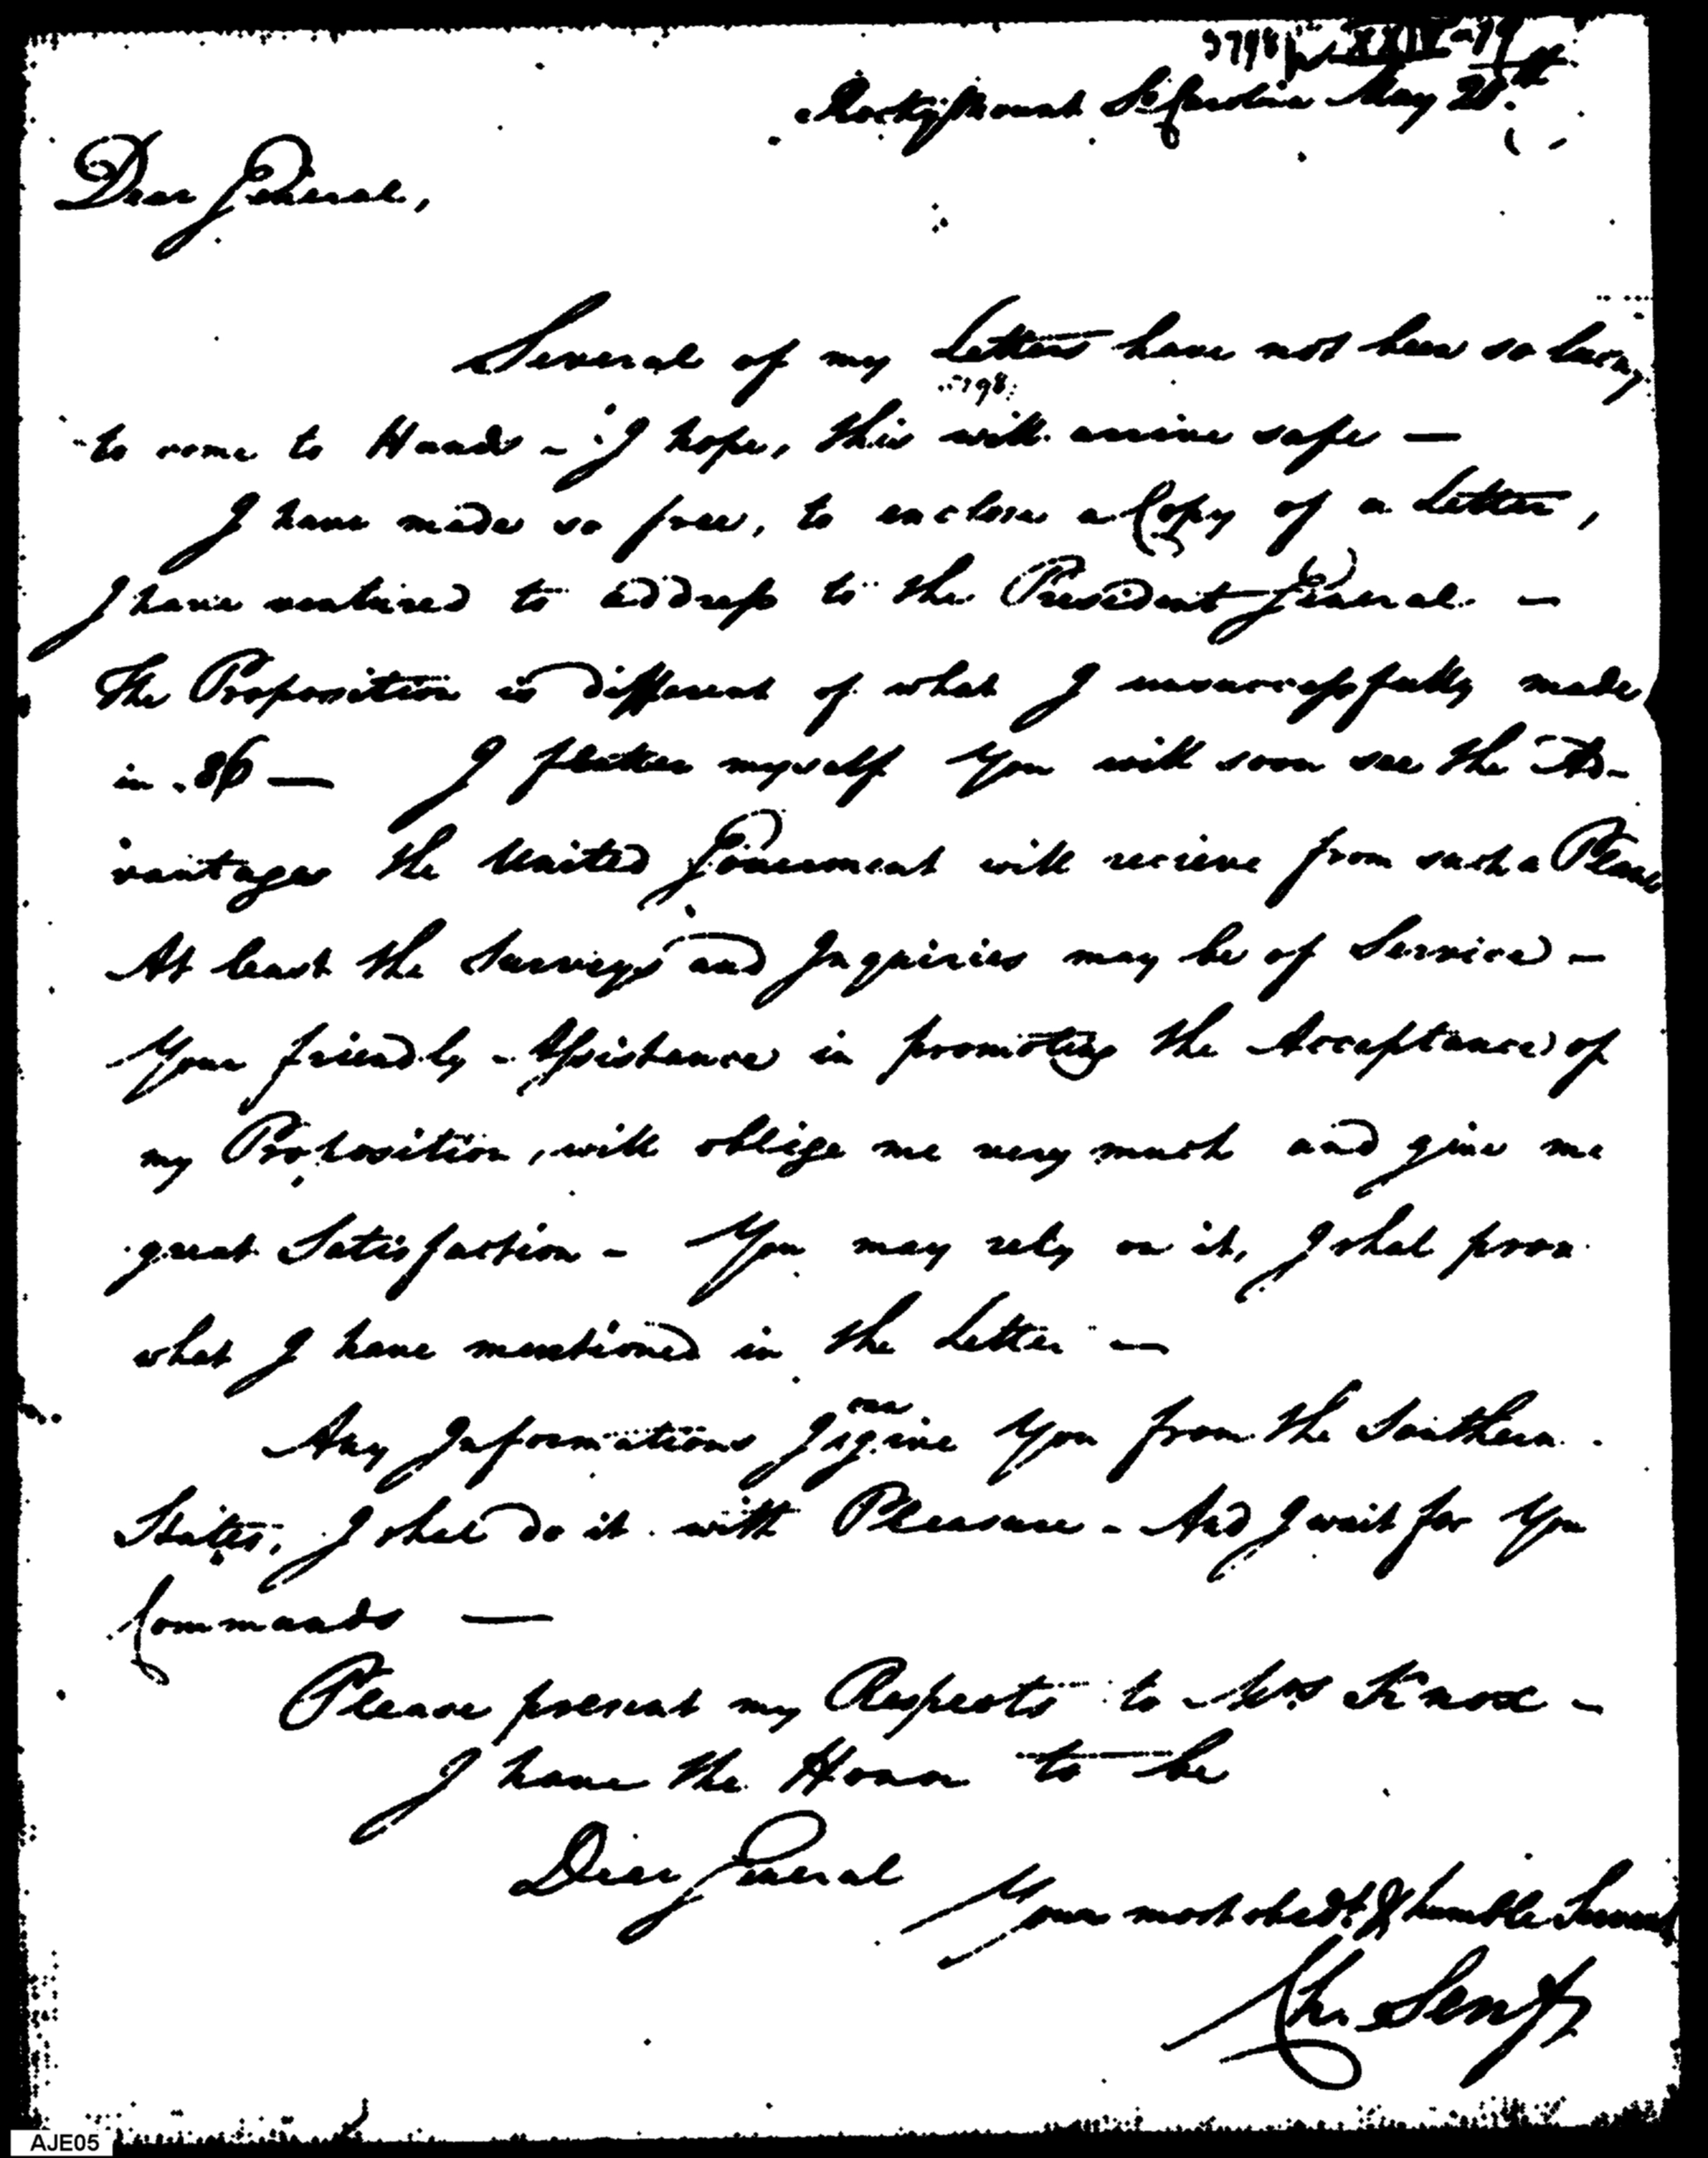 XXIV-79
Rocky Mount So. Carolina May 20th
Dear General,
Several of my Letters have not been so lucky
to come to Hands - I hope, this will arrive safe —
I have made so free, to enclose a Copy of a Letter,
I have ventured to address to the President General —
The Proposition is different of what I unsuccessfully made
in .86 — I flatter myself You will soon see the Ad-
vantages the United Government will recieve from such a
At least the Surveys and Inquiries may be of Service —
Your friendly Assistance in promoting the Acceptance of
my Proposition, will oblige me very much and give me
great Satisfaction - You may rely on it, I shal prove
what I have mentioned in the Letter —
Any Informations I can give You from the Southern
States, I shal do it with Pleasure - And I wait for You
Commands —
Please present my Respects to Mrs Knox -
I have the Honor to be
Dear General
Your most obedt. & humble Servant
Chr. Senf
AJE05